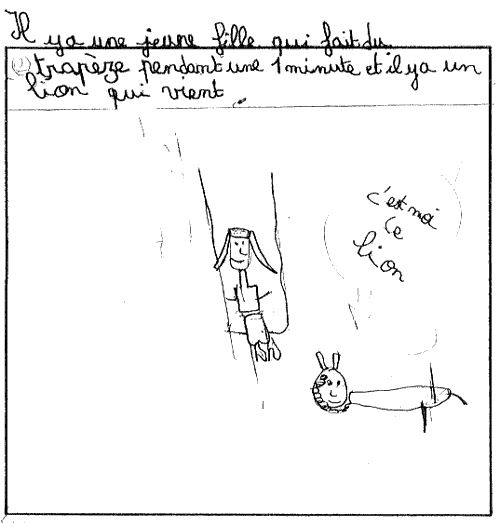 Il y a une jeune fille qui fait du
trapèze pendant une 1 minute et il y a un
lion qui vient.
c'est moi
le
lion